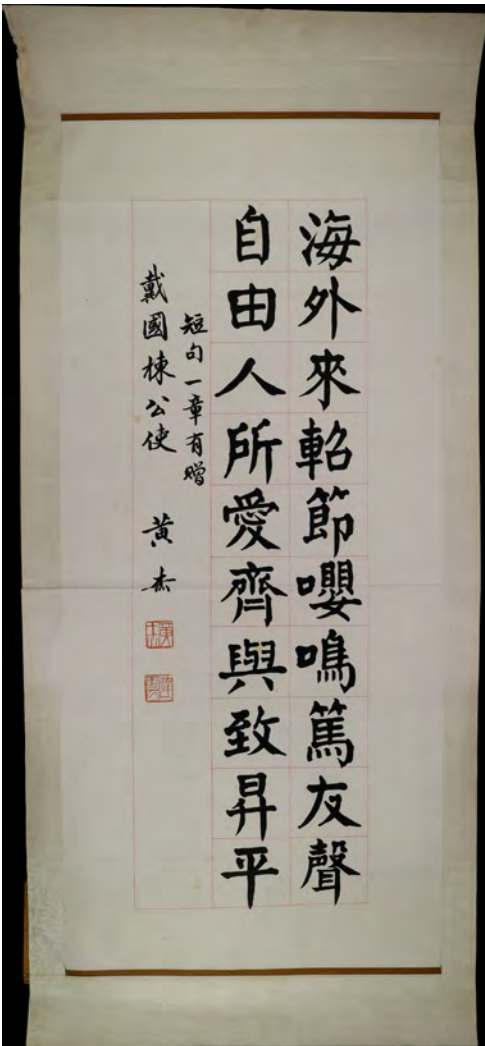 海外來軺節嚶鳴篤友聲
自由人所愛齊與致昇平
短句一章有贈
戴國棟公使
黃杰